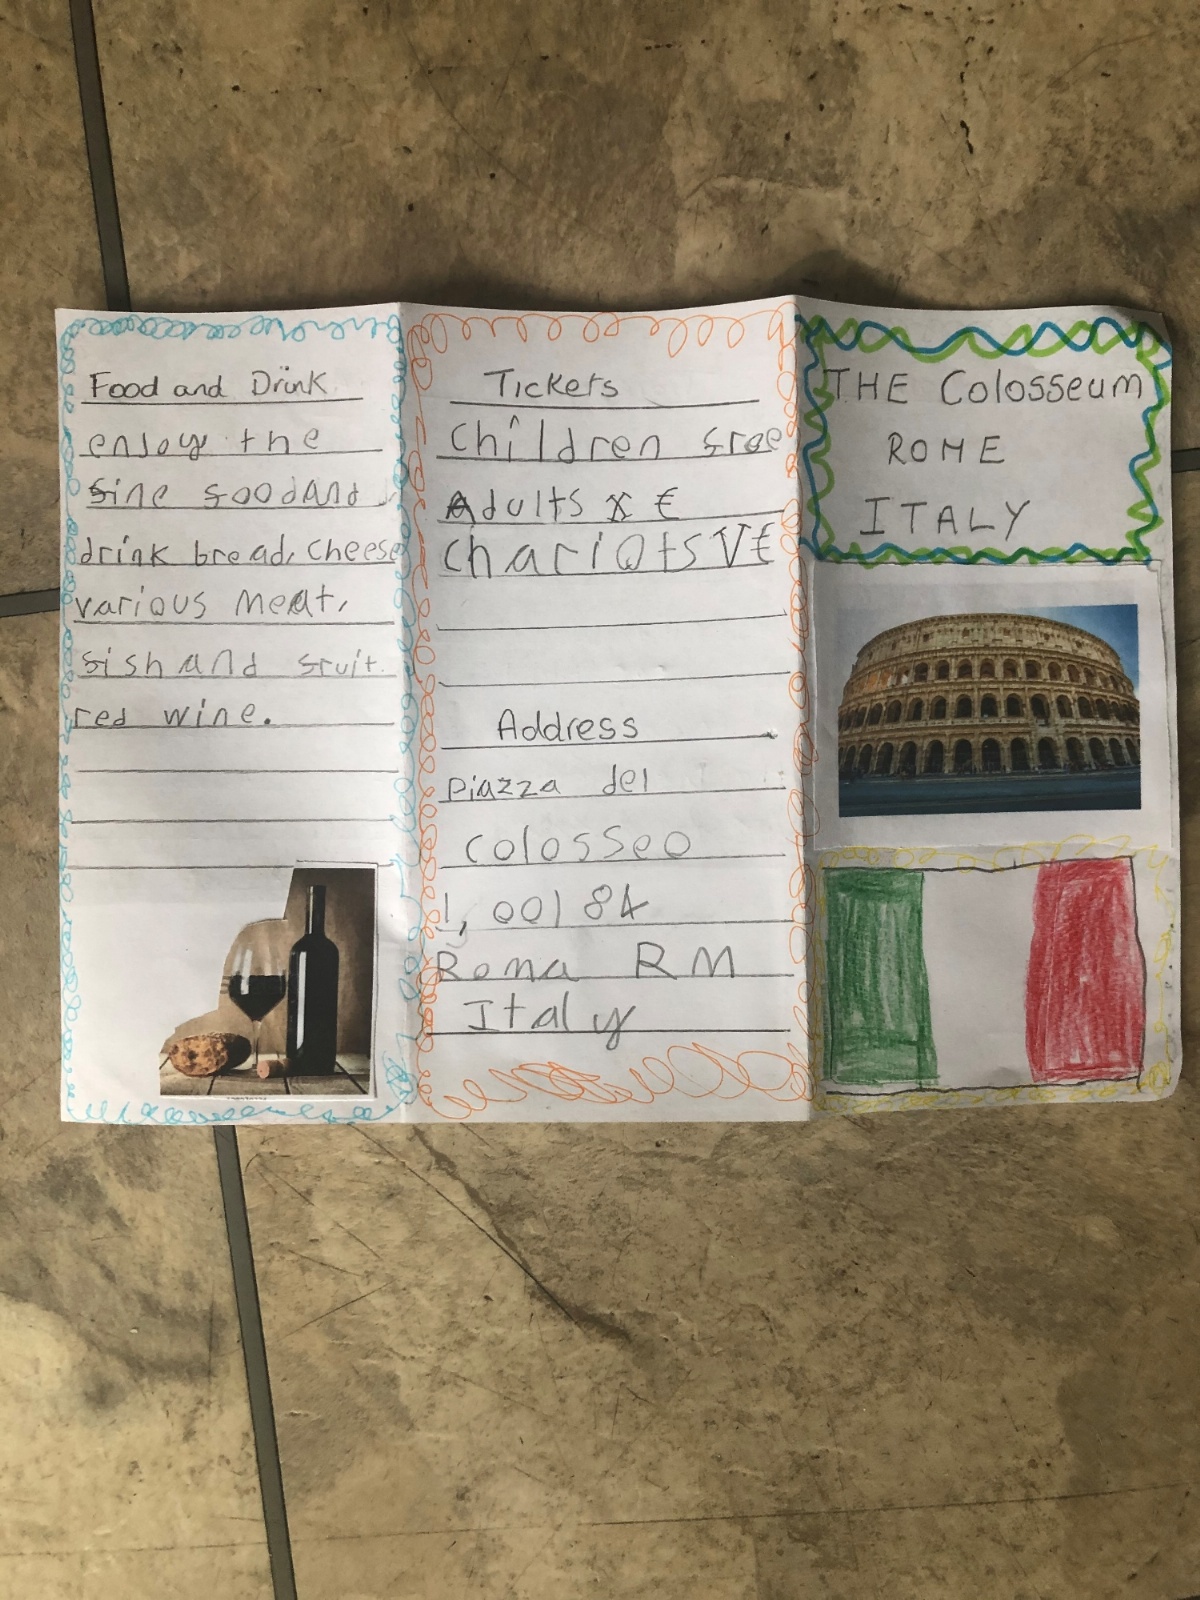 Food and Drink
enjoy the
fine food and
drink bread, cheese
various meat,
fish and fruit.
red wine.
Tickets
Children free
Adults X €
chariots V€
Address
Piazza del
Colosseo
1, 00184
Roma RM
Italy
THE Colosseum
ROME
ITALY